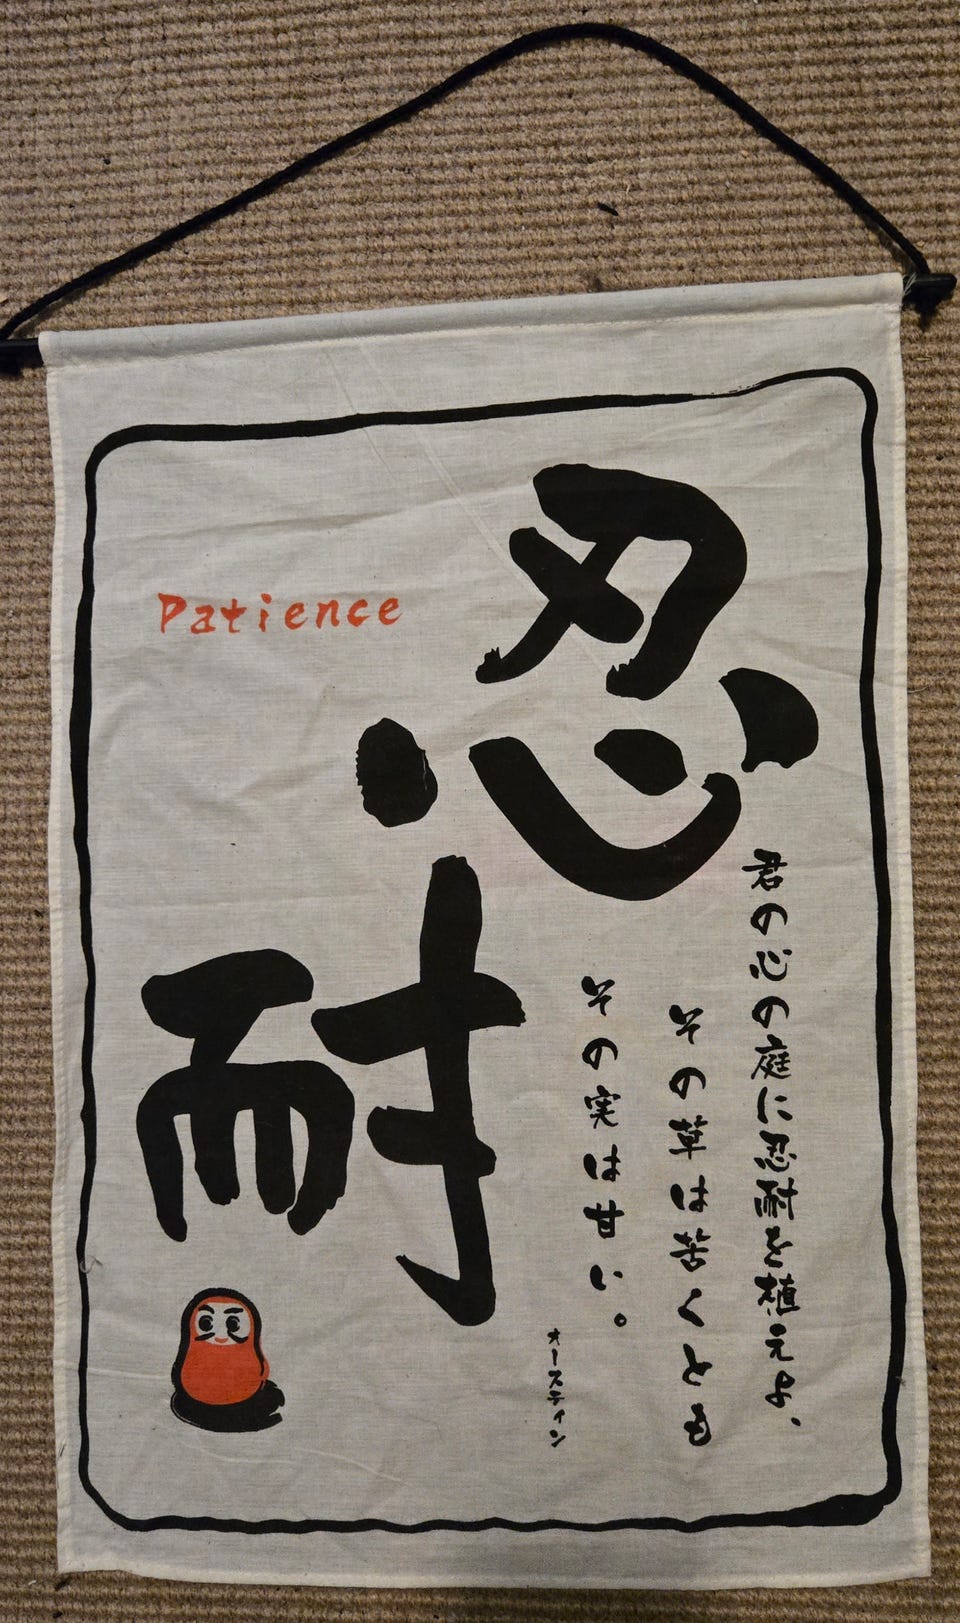 忍耐
Patience
君の心の庭に忍耐を植えよ、
その草は苦くとも
その実は甘い。
オースティン